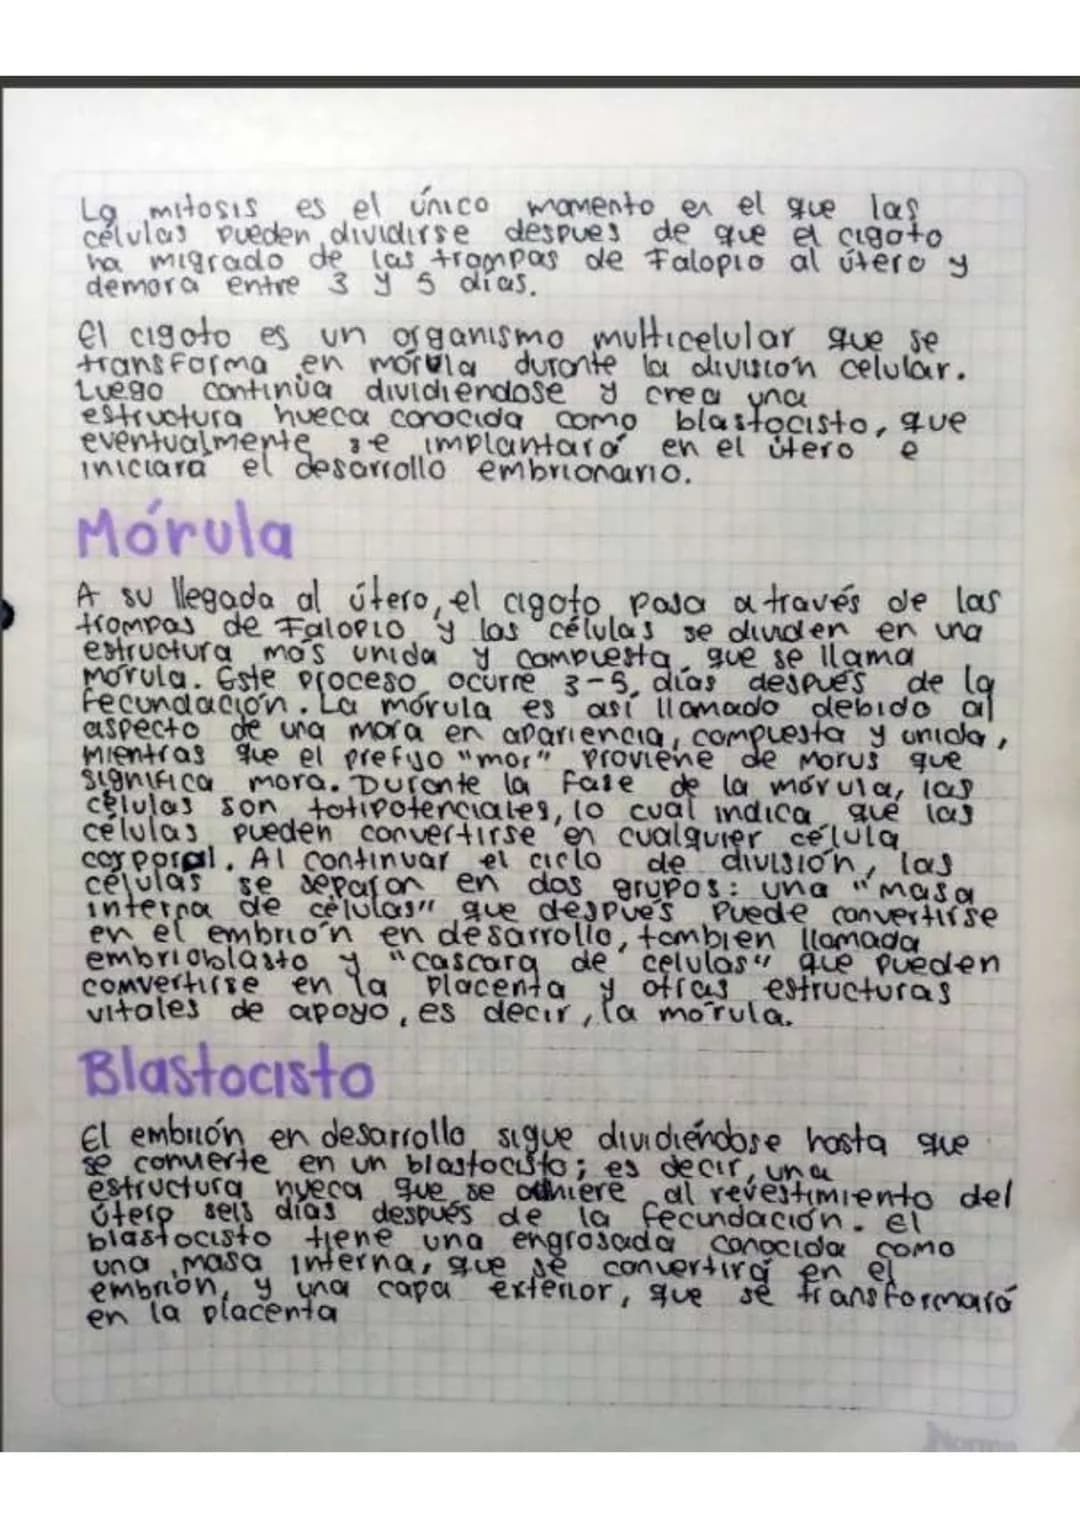 La mitosis es el único momento en el que las
células pueden dividirse despues de que el cigoto
ha migrado de las trompas de Falopio al útero y
demora entre 3 y 5 dias.
El cigoto es un organismo multicelular que se
transforma en mórula durante la división celular.
Luego continúa dividiéndose y crea una
estructura hueca conocida como blastocisto, que
eventualmente se implantará en el útero e
iniciara el desarrollo embrionario.
Mórula
A su llegada al útero, el cigoto pasa a través de las
trompas de Falopio y las células se dividen en una
estructura más unida y compuesta, que se llama
mórula. Este proceso ocurre 3-5 días después de la
Fecundación. La mórula es así llamado debido al
aspecto de una mora en apariencia, compuesta y unida,
mientras que el prefijo "mor" proviene de Morus que
significa mora. Durante la Fase de la mórula, las
células son totipotenciales, lo cual indica que las
células pueden convertirse en cualquier célula
corporal. Al continuar el ciclo de división, las
células se separan en dos grupos: una "masa
interna de células" que después Puede convertirse
en el embrión en desarrollo, tambien llamada
embrioblasto y "cascara de celulas" que pueden
comvertirse en la placenta y otras estructuras
vitales de apoyo, es decir, la mórula.
Blastocisto
El embrión en desarrollo sigue dividiéndose hasta que
se convierte en un blastocisto; es decir, una
estructura hueca que se adhiere al revestimiento del
útero seis días después de la fecundación. el
blastocisto tiene una engrosada conocida como
una masa interna, que se convertirá en el
embrión, y una capa exterior, que se transformará
en la placenta
Norma